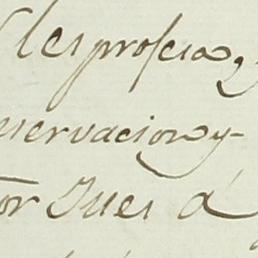 les profesa, y
nservacion y
or Juez á